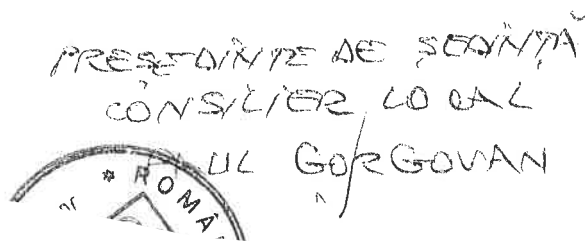 PREȘEDINTE DE ȘEDINȚĂ
CONSILIER LOCAL
GORGOVAN
* ROMÂ